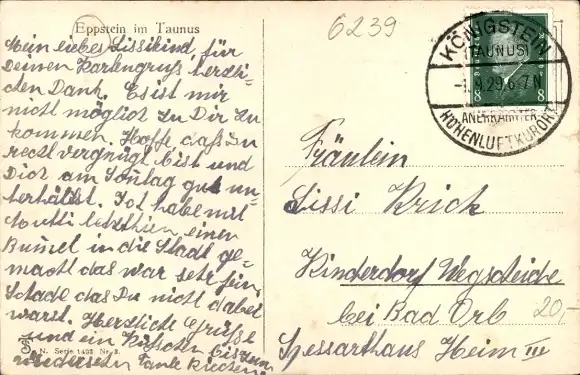 Eppstein im Taunus
6239
Mein liebes Lissikind, für
Deinen Kartengruß, herzli-
chen Dank. Es ist mir
nicht möglich zu Dir zu
kommen. Hoffe, daß Du
recht vergnügt bist und
Dich am Sonntag gut un-
terhältst. Ich habe mit
Mutti letzthin einen
Bummel in die Stadt ge-
macht das war sehr fein,
Schade das Du nicht dabei
warst. Herzliche Grüße
und ein Küßchen bis zum
Wiedersehen Tante
N. Serie 1493 Nr. 3.
KÖNIGSTEIN
(TAUNUS)
29.6-7N
8 8
ANERKANNTER
HÖHENLUFTKURORT
Fräulein
Lissi Krick
Kinderdorf Wegscheide
bei Bad Orb
20,-
Spessarthaus Heim III